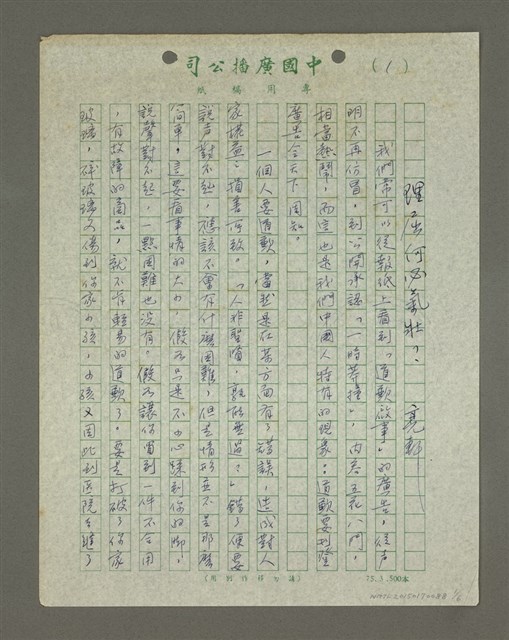 中國廣播公司
專用稿紙
(1)
理屈何必氣壯！
亮軒
我們常可以從報紙上看到「道歉啟事」的廣告，從聲
明不再仿冒，到公開承認「一時莽撞」，內容五花八門，
相當熱鬧，而這也是我們中國人特有的現象：道歉要刊登
廣告令天下周知。
一個人要道歉，當然是在某方面有了錯誤，造成對人
家損益、損害何致。「人非聖賢，孰能無過？」錯了便要
說声對不起，應該不會有什麼困難，但是情形並不是那麼
簡單。這要看事情的大小，假如只是不小心踩到你的腳，
說聲對不起，一點困難也沒有。假如讓你買到一件不合用
，有故障的商品，就不肯輕易的道歉了。要是打破了你家
玻璃，碎玻璃又傷到你家小孩，小孩又因此到医院去縫了
(請勿移作別用)
75.3.500本